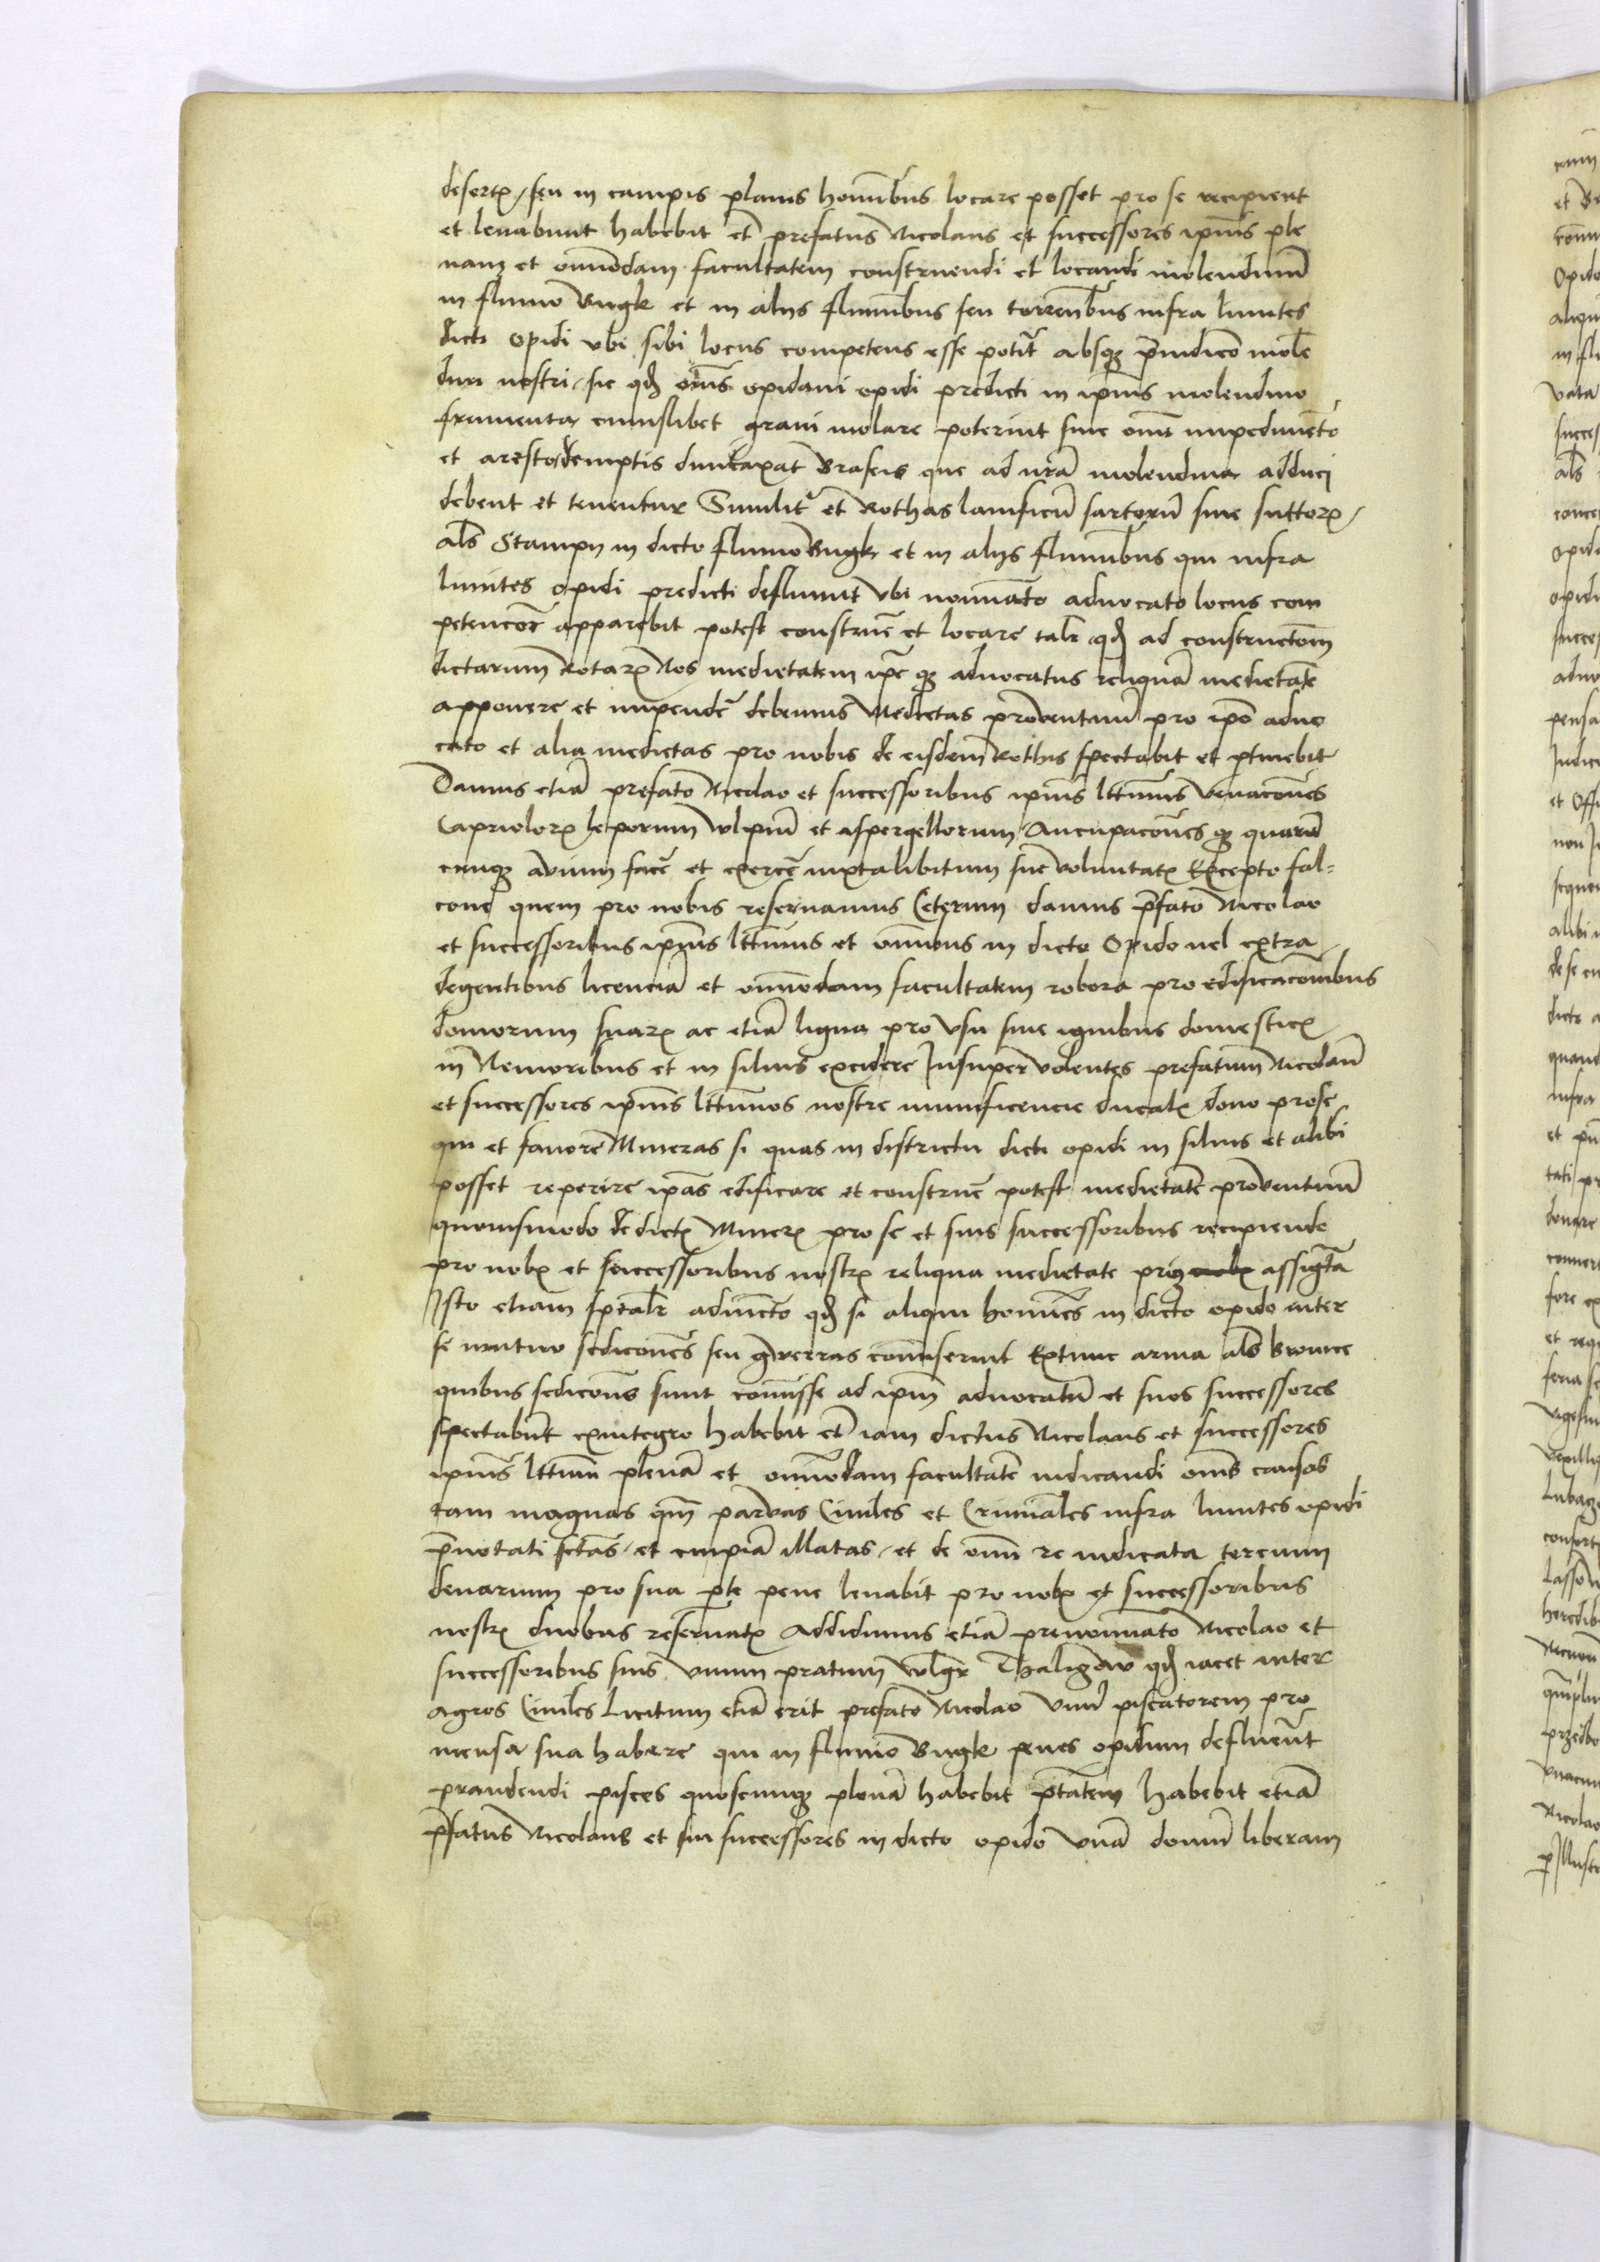 desertꝭ / seu in campis planis hominibus locare posset pro se recipient
et leuabunt habebit et̄ prefatus Nicolaus et successores ip̄ius ple
nam et om̄imodam facultatem construendi et locandi molendinū
in fluuio Bugk et in alijs fluminibus seu torrentibus infra limites
dicti opidi vbi sibi locus competens esse potit̄ absqꝫ p̄iudicio mole
dini nostri / sic qđ om̄s opidani opidi predicti in ip̄ius molendino
frumenta cuiuslibet grani molare poterint sine om̄i impedimēto
et aresto demptis duntaxat Braseis que ad nr̄a molendina adduci
debent et tenentur Similit̄ et̄ Rothas lanificū sartorū siue suttorꝝ /
al̄s Stampy in dicto fluuio Bugk et in alijs fluminibus qui infra
limites opidi predicti defluunt vbi nominato aduocato locus com
petencior apparebit potest construe͂ et locare tal̄r qđ ad constructōem
dictarum Rotarꝝ Nos medietatem ip̄e qꝫ aduocatus reliquā medietatē
apponere et impende͂ debemus Medietas prouentuū pro ip̄o aduo
cato et alia medietas pro nobis de eisdem Rothis spectabit et ptinebit
Damus etiā prefato Nicolao et successoribus ip̄ius lttimis venacōes
Capriolorꝝ leporum vlpiū et aspergellorum Aucupacōes qꝫ quarū
cunqꝫ auium face͂ et exerce͂ iuxta libitum sue voluntatꝭ Excepto fal=
cone quem pro nobis reseruamus Ceterum damus p̄fato Nicolao
et successoribus ip̄ius lttimis et om̄ibus in dicto Opido uel extra
degentibus licenciā et om̄imodam facultatem robora pro edificacōnibus
domorum suarꝝ ac etiā ligna pro vsu siue ignibus domesticꝭ
in Nemoribus et in siluis excidere Insuper volentes prefatum Nicolaū
et successores ip̄ius lttimos nostre munificencie ducalꝭ dono prose
qui et fauore Mineras si quas in districtu dicti opidi in siluis et alibi
posset reperire ip̄as edificare et construe͂ potest medietatē prouentuū
quouismodo de dictꝭ Minerꝭ pro se et suis successoribus recipiendo
pro nobꝭ et successoribus nostrꝭ reliqua medietate assigᷓta
Isto etiam sp̄cal̄r adiūcto qđ si aliqui homīes in dicto opido inter
se mutuo sedicōes seu gwerras cōmiserint Extunc arma al̄s Bronie
quibus sedicōes sunt cōmisse ad ip̄m aduocatū et suos successores
spectabūt exintegro habebit et̄ iam dictus Nicolaus et successores
ip̄ius lttimi plenā et om̄imodam facultatē iudicandi om̄s causas
tam magnas qm̄ paruas Ciuiles et Criminales infra limites opidi
p̄notati fctas / et empiā illatas / et de om̄i re iudicata tercium
denarium pro sua p̄te pene leuabit pro nobꝭ et successoribus
nostrꝭ duobus reseruatꝭ Addidimus etiā prenominato Nicolao et
successoribus suis vnum pratum vulgr̄ Thaligow qđ iacet inter
agros Ciuiles Licitum etiā erit prefato Nicolao vnū piscatorem pro
mensa sua habere qui in fluuio Bugk penes opidum defluent̄
prandendi pisces quoscunqꝫ plenā habebit p̄tatem habebit etiā
p̄fatus Nicolaus et sui successores in dicto opido vnā domū liberam